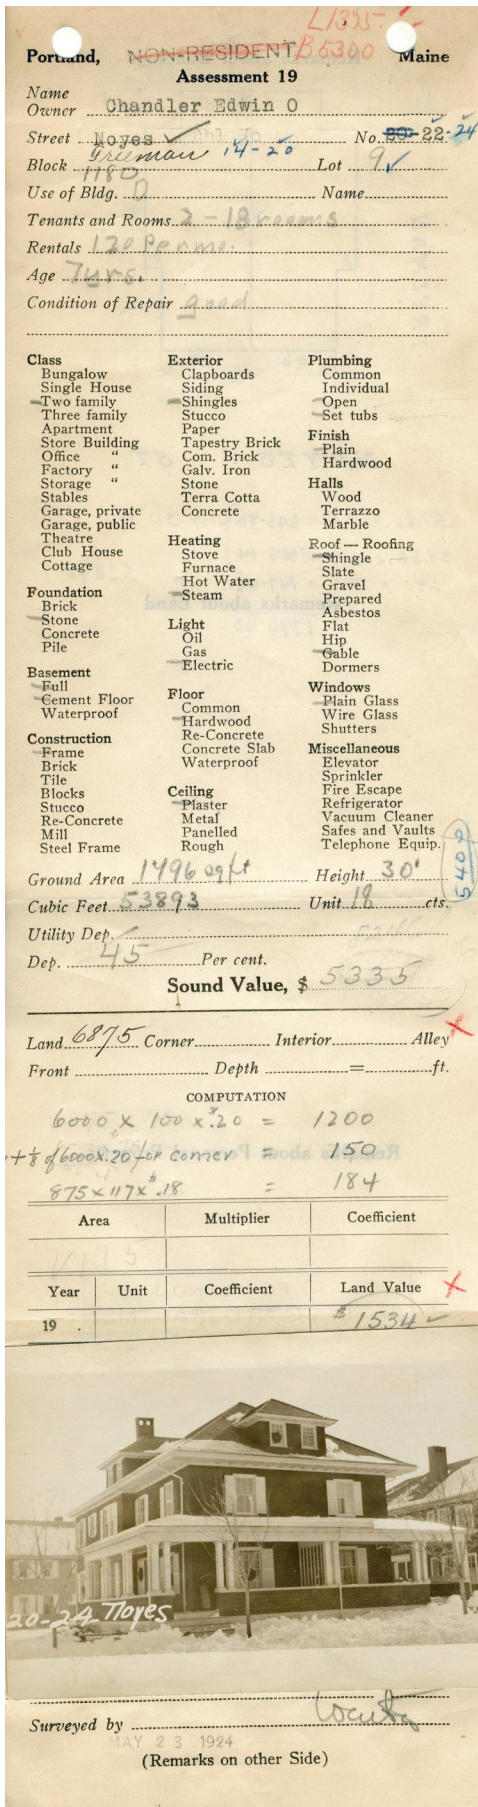 L1325.-
Portland, NON-RESIDENT B5300 Maine
Assessment 19
Name
Owner Chandler Edwin O
Street Noyes No. 20-22-24
Freeman 14-20
Block 1180 Lot 9
Use of Bldg. D Name
Tenants and Rooms 2-18 rooms
Rentals 120 Per mo.
Age 7 yrs.
Condition of Repair good
Class
Bungalow
Single House
Two family
Three family
Apartment
Store Building
Office "
Factory "
Storage "
Stables
Garage, private
Garage, public
Theatre
Club House
Cottage
Foundation
Brick
Stone
Concrete
Pile
Basement
Full
Cement Floor
Waterproof
Construction
Frame
Brick
Tile
Blocks
Stucco
Re-Concrete
Mill
Steel Frame
Exterior
Clapboards
Siding
Shingles
Stucco
Paper
Tapestry Brick
Com. Brick
Galv. Iron
Stone
Terra Cotta
Concrete
Heating
Stove
Furnace
Hot Water
Steam
Light
Oil
Gas
Electric
Floor
Common
Hardwood
Re-Concrete
Concrete Slab
Waterproof
Ceiling
Plaster
Metal
Panelled
Rough
Plumbing
Common
Individual
Open
Set tubs
Finish
Plain
Hardwood
Halls
Wood
Terrazzo
Marble
Roof — Roofing
Shingle
Slate
Gravel
Prepared
Asbestos
Flat
Hip
Gable
Dormers
Windows
Plain Glass
Wire Glass
Shutters
Miscellaneous
Elevator
Sprinkler
Fire Escape
Refrigerator
Vacuum Cleaner
Safes and Vaults
Telephone Equip.
5400
Ground Area 1796 sq ft Height 30'
Cubic Feet 53893 Unit 18 cts.
Utility Dep.
Dep. 45 Per cent.
Sound Value, $ 5335
Land 6875 Corner Interior Alley X
Front Depth = ft.
COMPUTATION
6000 x 100 x $.20 = 1200
+ 1/8 of 6000 x .20 for corner = 150
875 x 117 x $.18 = 184
Area Multiplier Coefficient
Year Unit Coefficient Land Value X
19 . $ 1534
20-24 Noyes
Surveyed by
MAY 23 1924
(Remarks on other Side)